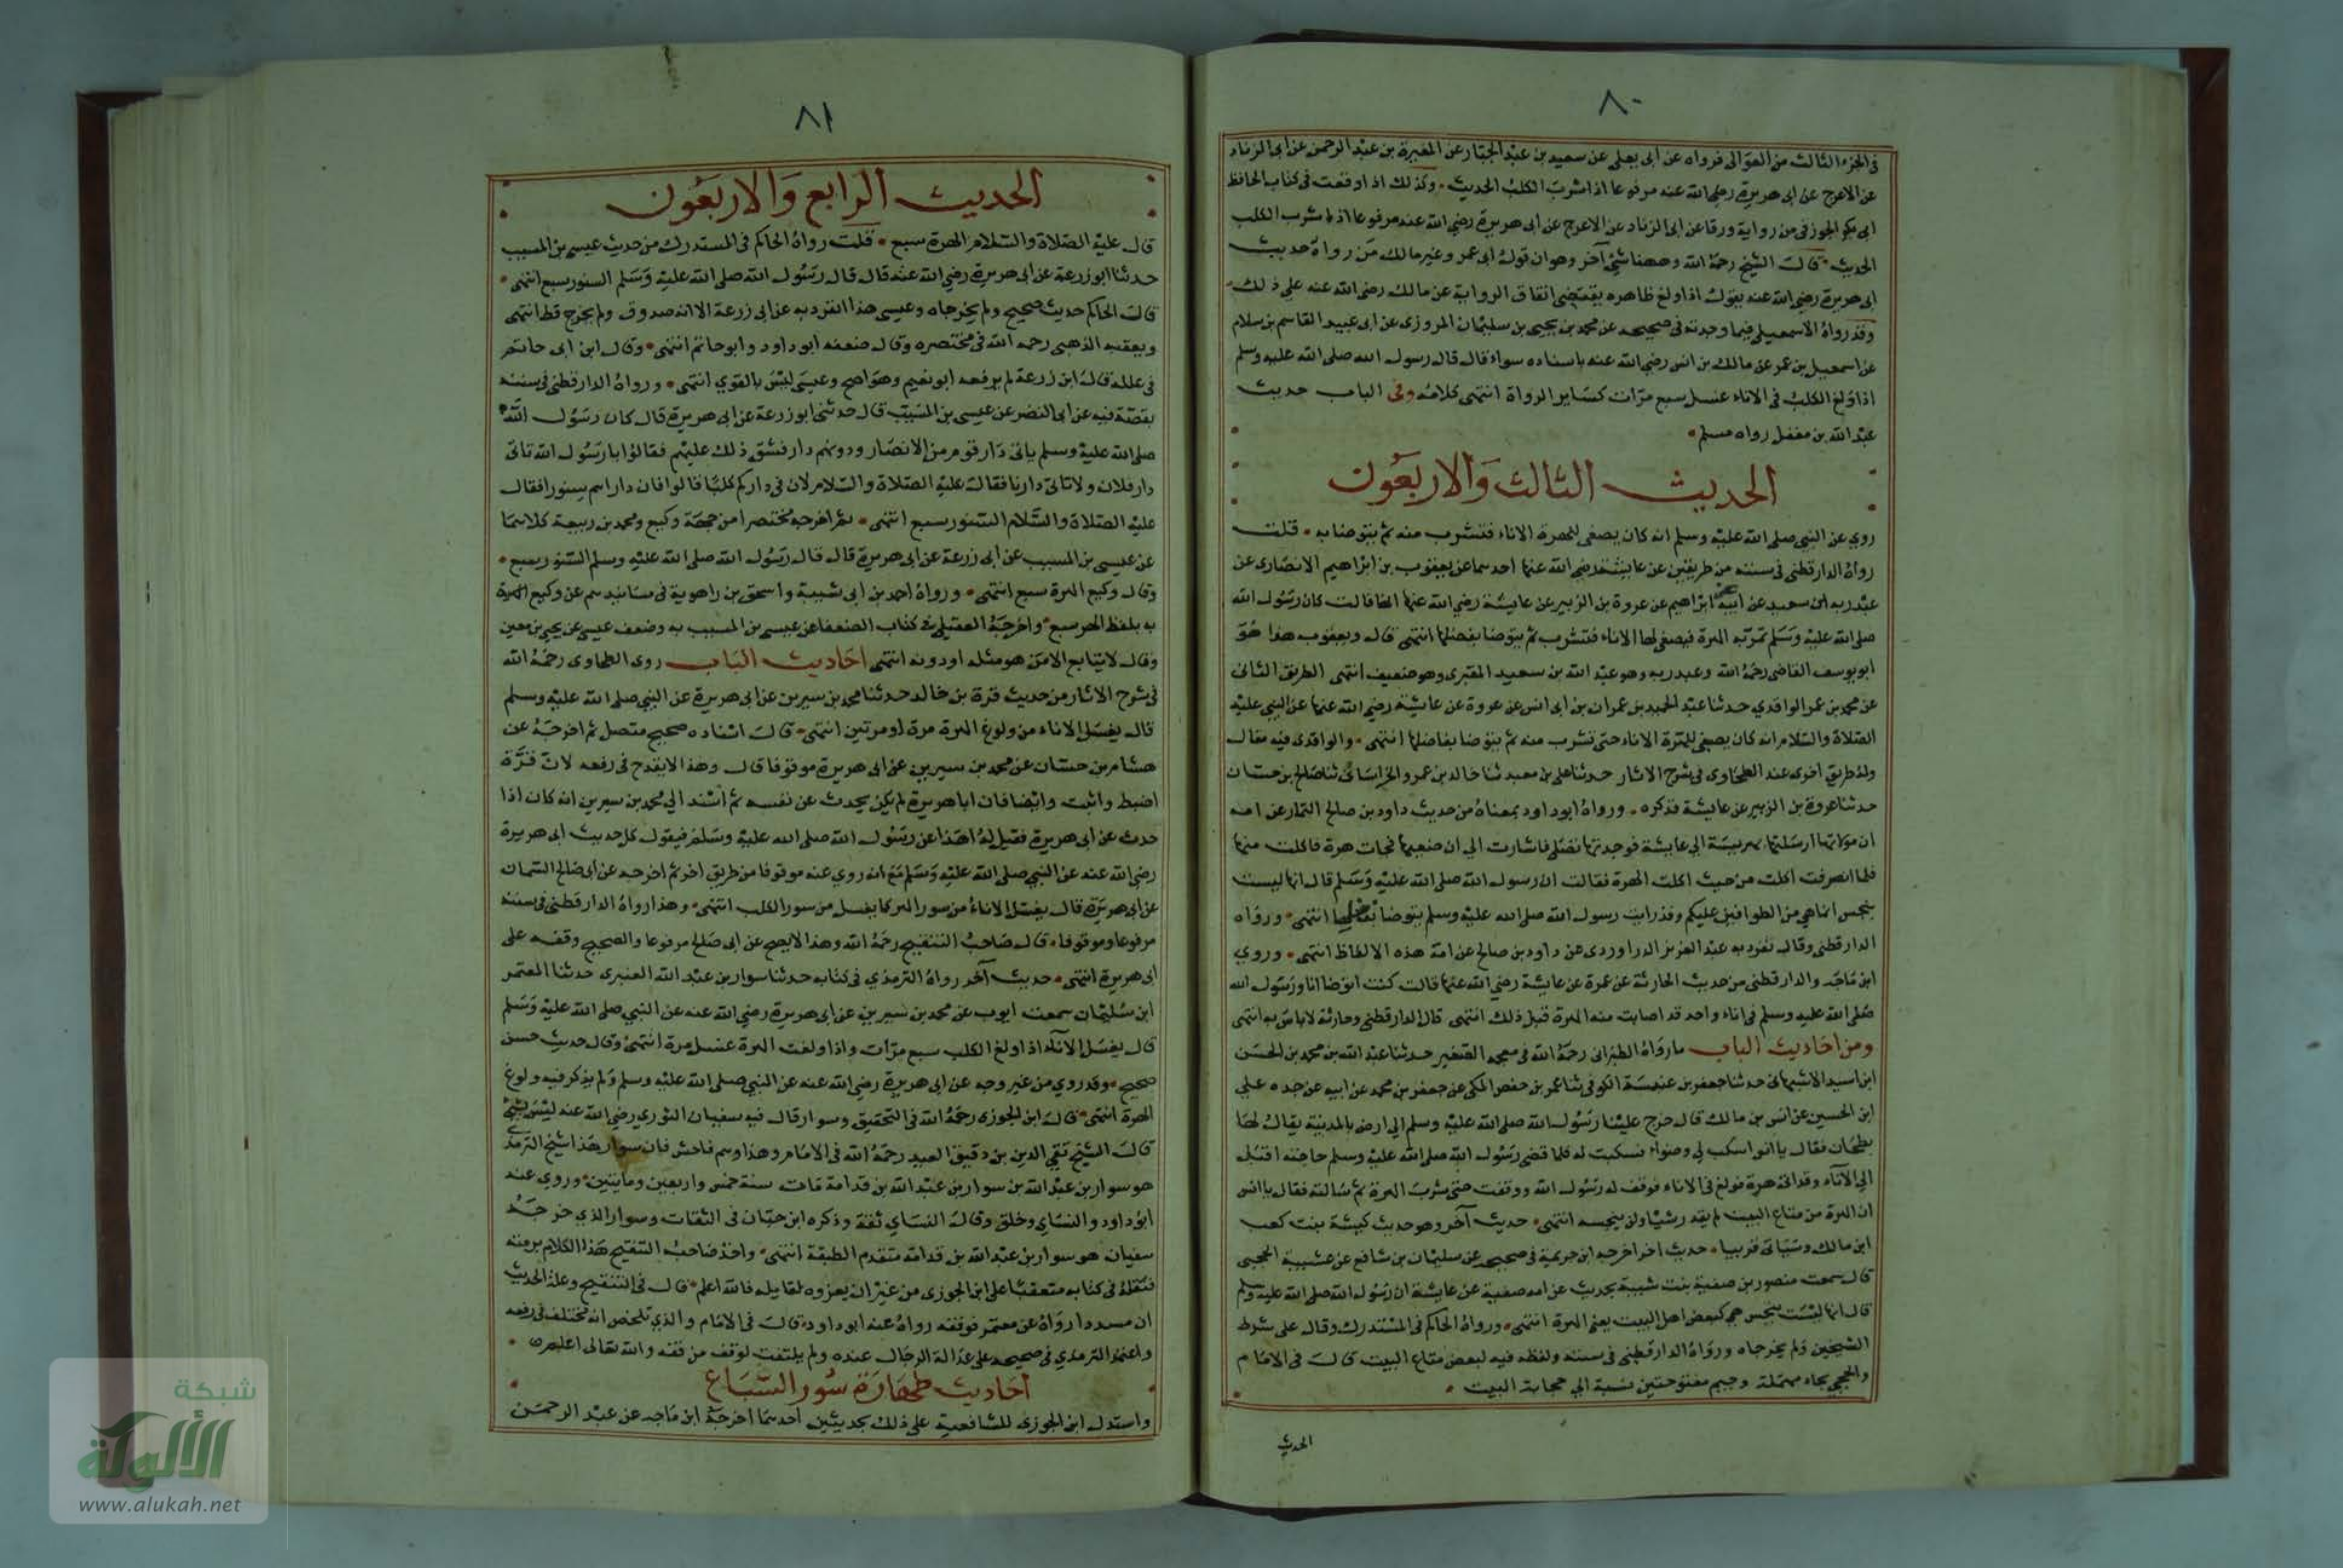 ٨٠
في الجزء الثالث من العوالي فرواه عن ابي يعلى عن سعيد بن عبد الجبار عن المغيرة بن عبد الرحمن عن ابي الزناد
عن الاعرج عن ابي هريرة رضي الله عنه مرفوعا اذا شرب الكلب الحديث وكذلك اذا وقعت في كتاب الحافظ
ابي بكر الجوزقي من رواية ورقا عن ابي الزناد عن الاعرج عن ابي هريرة رضي الله عنه مرفوعا اذا شرب الكلب
الحديث قال الشيخ رحمه الله وههنا شيء آخر وهو ان قول ابي عمر وغير مالك من رواة حديث
ابي هريرة رضي الله عنه يقول اذا ولغ ظاهره يقتضي اتفاق الرواية عن مالك رضي الله عنه على ذلك
وقد رواه الاسمعيلي فيما وجدته في صحيحه عن محمد بن يحيى بن سليمان المروزي عن ابي عبيد القاسم بن سلام
عن اسمعيل بن عمر عن مالك بن انس رضي الله عنه باسناده سواء قال قال رسول الله صلى الله عليه وسلم
اذا ولغ الكلب في الاناء غسل سبع مرات كساير الرواة انتهى كلامه وفي الباب حديث
عبد الله بن مغفل رواه مسلم
الحديث الثالث والاربعون
روي عن النبي صلى الله عليه وسلم انه كان يصغي للهرة الاناء فتشرب منه ثم يتوضا به قلت
رواه الدارقطني في سننه من طريقين عن عايشة رضي الله عنها احدهما عن يعقوب بن ابراهيم الانصاري عن
عبد ربه ابن سعيد عن ابيه عن ابراهيم عن عروة بن الزبير عن عايشة رضي الله عنها انها قالت كان رسول الله
صلى الله عليه وسلم تمر به الهرة فيصغي لها الاناء فتشرب ثم يتوضا بفضلها انتهى قال ويعقوب هذا هو
ابو يوسف القاضي رحمه الله وعبد ربه وهو عبد الله بن سعيد المقبري وهو ضعيف انتهى الطريق الثاني
عن محمد بن عمر الواقدي حدثنا عبد الحميد بن عمران بن ابي انس عن عروة عن عايشة رضي الله عنها عن النبي عليه
الصلاة والسلام انه كان يصغي للهرة الاناء حتى تشرب منه ثم يتوضا بفاضلها انتهى والواقدي فيه مقال
وله طريق اخرى عند الطحاوي في شرح الاثار حدثنا علي بن معبد ثنا خالد بن عمرو الخراساني ثنا صالح بن حسان
حدثنا عروة بن الزبير عن عايشة فذكره ورواه ابو داود بمعناه من حديث داود بن صالح التمار عن امه
ان مولاتها ارسلتها بهريسة الى عايشة فوجدتها تصلي فاشارت الي ان ضعيها فجات هرة فاكلت منها
فلما انصرفت اكلت من حيث اكلت الهرة فقالت ان رسول الله صلى الله عليه وسلم قال انها ليست
بنجس انما هي من الطوافين عليكم وقد رايت رسول الله صلى الله عليه وسلم يتوضا بفضلها انتهى ورواه
الدارقطني وقال تفرد به عبد العزيز الدراوردي عن داود بن صالح عن امه هذه الالفاظ انتهى وروي
ابن ماجه والدارقطني من حديث الحارثة عن عمرة عن عايشة رضي الله عنها قالت كنت اتوضا انا ورسول الله
صلى الله عليه وسلم في اناء واحد قد اصابت منه الهرة قبل ذلك انتهى قال الدارقطني وحارثة لا باس به انتهى
ومن احاديث الباب ما رواه الطبراني رحمه الله في معجمه الصغير حدثنا عبد الله بن محمد بن الحسن
ابن اسيد الاشبهاني حدثنا جعفر بن عنبسة الكوفي ثنا عمر بن حفص المكي عن جعفر بن محمد عن ابيه عن جده علي
ابن الحسين عن انس بن مالك قال خرج علينا رسول الله صلى الله عليه وسلم الى ارض بالمدينة يقال لها
بطحان فقال يا انس اسكب لي وضوا فسكبت له فلما قضى رسول الله صلى الله عليه وسلم حاجته اقبل
الى الاناء وقد اتي هرة فولغ في الاناء فوقف له رسول الله ووقفت حتى شرب الهرة ثم سالته فقال يا انس
ان الهرة من متاع البيت لم يقذر شيئا ولن ينجسه انتهى حديث آخر وهو حديث كبشة بنت كعب
ابن مالك وسياتي قريبا حديث اخر اخرجه ابن خزيمة في صحيحه عن سليمان بن شافع عن شيبة الحجبي
قال سمعت منصور بن صفية بنت شيبة يحدث عن امه صفية عن عايشة ان رسول الله صلى الله عليه وسلم
قال انها ليست بنجس هي كبعض اهل البيت يعني الهرة انتهى ورواه الحاكم في المستدرك وقال على شرط
الشيخين ولم يخرجاه ورواه الدارقطني في سننه ولفظه فيه لبعض متاع البيت قال في الامام
والحجبي بحاء مهملة وجيم مفتوحتين نسبة الى حجابة البيت
الحديث
٨١
الحديث الرابع والاربعون
قال عليه الصلاة والسلام الهرة سبع قلت رواه الحاكم في المستدرك من حديث عيسى بن المسيب
حدثنا ابو زرعة عن ابي هريرة رضي الله عنه قال قال رسول الله صلى الله عليه وسلم السنور سبع انتهى
قال الحاكم حديث صحيح ولم يخرجاه وعيسى هذا انفرد به عن ابي زرعة الا انه صدوق ولم يخرج قط انتهى
وتعقبه الذهبي رحمه الله في مختصره وقال ضعفه ابو داود وابو حاتم انتهى وقال ابن ابي حاتم
في علله قال ابن زرعة لم يرفعه ابو نعيم وهو اصح وعيسى ليس بالقوي انتهى ورواه الدارقطني في سننه
بقصة فيه عن ابي النضر عن عيسى بن المسيب قال حدثني ابو زرعة عن ابي هريرة قال كان رسول الله
صلى الله عليه وسلم ياتي دار قوم من الانصار ودونهم دار فشق ذلك عليهم فقالوا يا رسول الله تاتي
دار فلان ولا تاتي دارنا فقال عليه الصلاة والسلام لان في داركم كلبا قالوا فان دارهم سنورا فقال
عليه الصلاة والسلام السنور سبع انتهى ثم اخرجه مختصرا من جهة وكيع ومحمد بن ربيعة كلاهما
عن عيسى بن المسيب عن ابي زرعة عن ابي هريرة قال قال رسول الله صلى الله عليه وسلم السنور سبع
وقال وكيع الهرة سبع انتهى ورواه احمد بن ابي شيبة واسحق بن راهوية في مسانيدهم عن وكيع الهرة
به بلفظ الهر سبع واخرجه العقيلي في كتاب الضعفا عن عيسى بن المسيب به وضعف عيسى عن يحيى بن معين
وقال لا يتابع الا من هو مثله او دونه انتهى احاديث الباب روى الطحاوي رحمه الله
في شرح الاثار من حديث قرة بن خالد حدثنا محمد بن سيرين عن ابي هريرة عن النبي صلى الله عليه وسلم
قال يغسل الاناء من ولوغ الهرة مرة او مرتين انتهى قال اسناده صحيح متصل ثم اخرجه عن
هشام بن حسان عن محمد بن سيرين عن ابي هريرة موقوفا قال وهذا لا يقدح في رفعه لان قرة
اضبط واثبت وايضا فان ابا هريرة لم يكن يحدث عن نفسه ثم اسند الى محمد بن سيرين انه كان اذا
حدث عن ابي هريرة فقيل له اهذا عن رسول الله صلى الله عليه وسلم فيقول كل حديث ابي هريرة
رضي الله عنه عن النبي صلى الله عليه وسلم مع انه روي عنه موقوفا من طريق اخر ثم اخرجه عن ابي صالح السمان
عن ابي هريرة قال يغسل الاناء من سور الهر كما يغسل من سور الكلب انتهى وهذا رواه الدارقطني في سننه
مرفوعا وموقوفا قال صاحب التنقيح رحمه الله وهذا لا يصح عن ابي صالح مرفوعا والصحيح وقفه على
ابي هريرة انتهى حديث آخر رواه الترمذي في كتابه حدثنا سوار بن عبد الله العنبري حدثنا المعتمر
ابن سليمان سمعت ايوب عن محمد بن سيرين عن ابي هريرة رضي الله عنه عن النبي صلى الله عليه وسلم
قال يغسل الاناء اذا ولغ الكلب سبع مرات واذا ولغت الهرة غسل مرة انتهى وقال حديث حسن
صحيح وقد روي من غير وجه عن ابي هريرة رضي الله عنه عن النبي صلى الله عليه وسلم ولم يذكر فيه ولوغ
الهرة انتهى قال ابن الجوزي رحمه الله في التحقيق وسوار قال فيه سفيان الثوري رضي الله عنه ليس بشيء
قال الشيخ تقي الدين بن دقيق العيد رحمه الله في الامام وهذا وهم فاحش فان سوار هذا شيخ الترمذي
هو سوار بن عبد الله بن سوار بن عبد الله بن قدامة مات سنة خمس واربعين ومايتين وروى عنه
ابو داود والنساي وخلق وقال النساي ثقة وذكره ابن حبان في الثقات وسوار الذي جرحه
سفيان هو سوار بن عبد الله بن قدامة متقدم الطبقة انتهى واخذ صاحب التنقيح هذا الكلام برمته
فنقله في كتابه متعقبا على ابن الجوزي من غير ان يعزوه لقايله فالله اعلم قال في التنقيح وعلة الحديث
ان مسددا رواه عن معتمر فوقفه رواه عنه ابو داود قال في الامام والذي تلخص انه مختلف في رفعه
واعتمد الترمذي في صحيحه على عدالة الرجال عنده ولم يلتفت لوقف من وقفه والله تعالى اعلم
احاديث طهارة سور السباع
واستدل ابن الجوزي للشافعية على ذلك بحديثين احدهما اخرجه ابن ماجه عن عبد الرحمن
شبكة
الألوكة
www.alukah.net